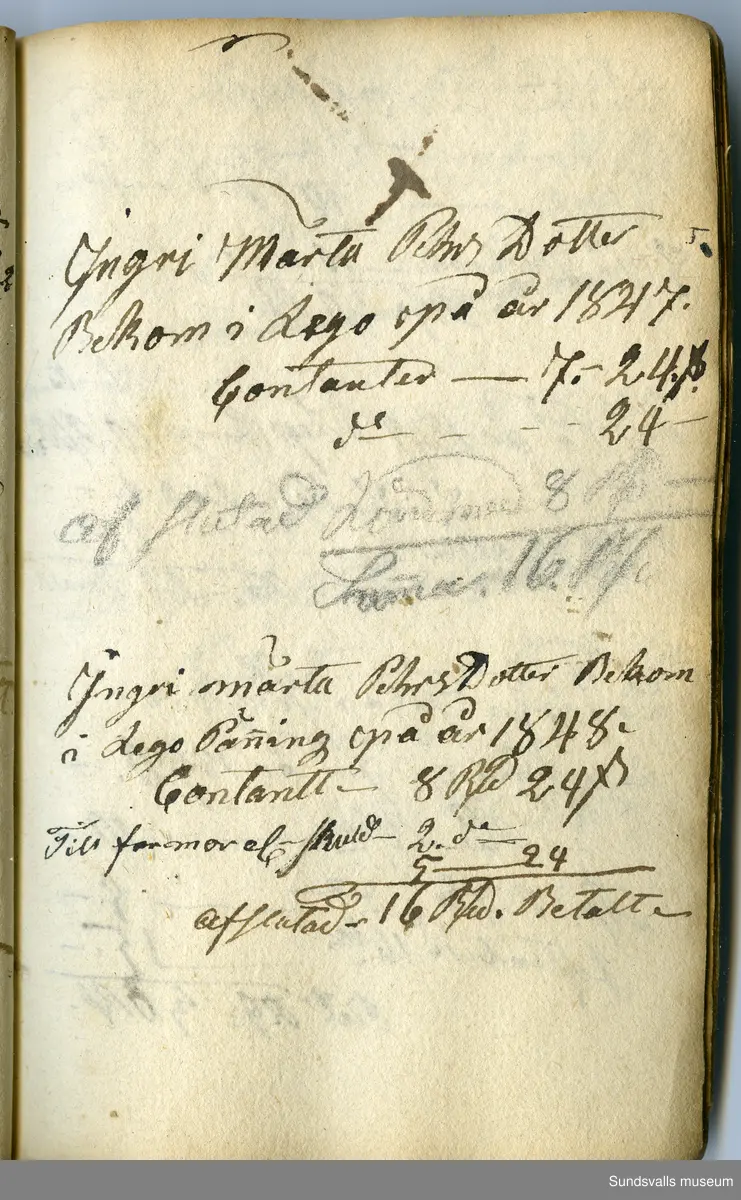 Jngri Märta Pehrs Dotter
Bekom i Lego opå år 1847.
Contanter — 7.- 24 ß.
do - - - 24 -
af slutad Lönn med 8 Rd
Suma. 16. Rd
Jngri märta PehrsDotter Bekom
i Lego Päñing opå år 1848.
Contantt - 8 Rd 24 ß
Till far mor skuld - 2. do -
5 — 24
afslutad - 16 Rd. Betalt -
Sundsvalls museum